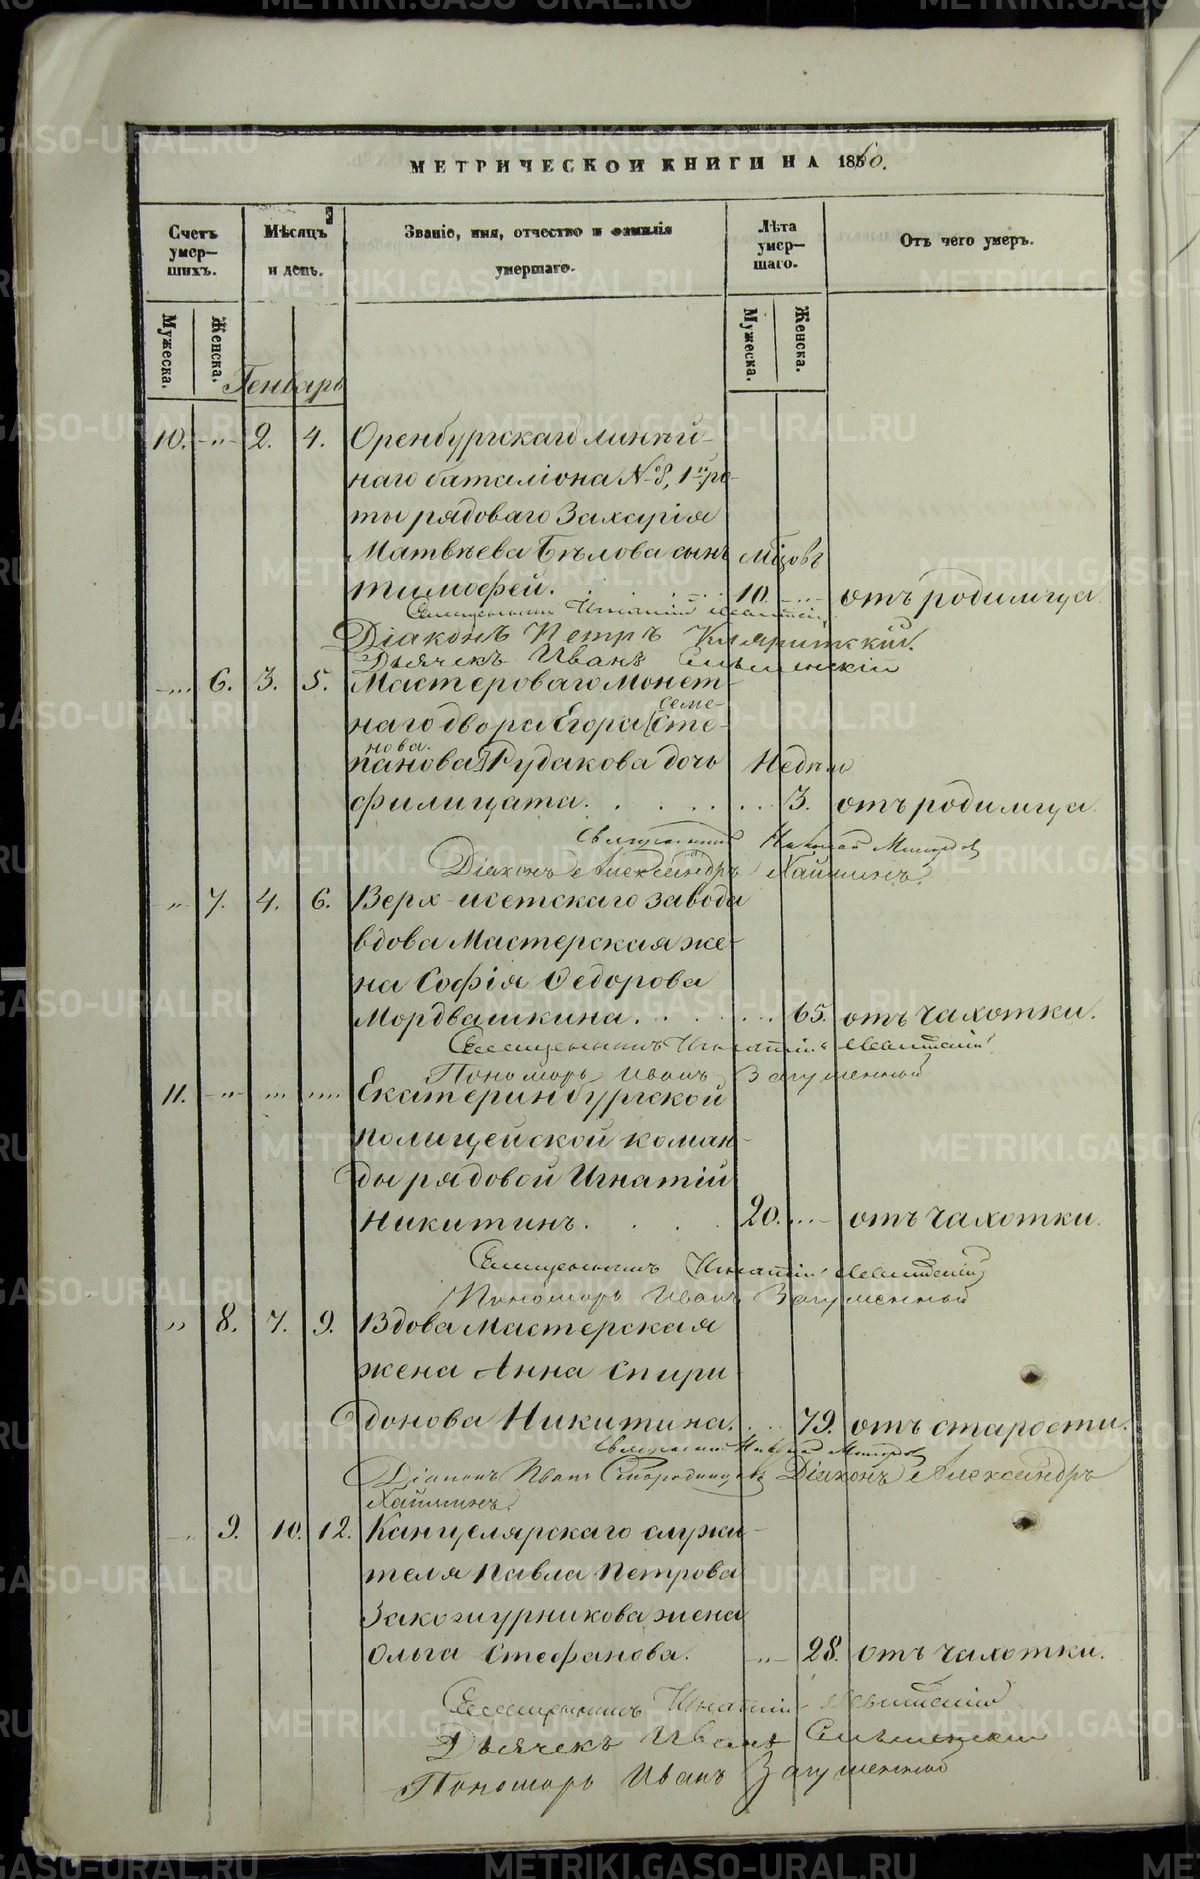 МЕТРИЧЕСКОЙ КНИГИ НА 1860.
Счетъ умер-шихъ.
Мѣсяцъ и день.
Званіе, имя, отчество и фамилія умершаго.
Лѣта умер-шаго.
Отъ чего умеръ.
Мужеска.
Женска.
Мужеска.
Женска.
Генварь
10. -„- 2. 4. Оренбургскаго линѣй-
наго баталіона №8, 1й ро-
ты рядоваго Захарія
Матвѣева Бѣлова сынъ мѣцовъ
Тимофей. 10. отъ родимца.
Священникъ Игнатій Левитскій
Діаконъ Петръ
Дьячекъ Иванъ
6. 3. 5. Мастероваго Монет-
наго двора Егора (Сте-
Семе-
нова.
панова) Рудакова дочь Недѣль
Филицата. 3. отъ родимца.
Священникъ Николай
Діаконъ Александръ
„ 7. 4. 6. Верх-исетскаго завода
вдова Мастерская же-
на Софія Ѳедорова
Мордвашкина. 65. отъ чахотки.
Священникъ Игнатій Левитскій
Пономарь Иванъ Загуменной
11. -„- Екатеринбургской
полицейской коман-
ды рядовой Игнатій
Никитинъ. 20. отъ чахотки.
Священникъ Игнатій Левитскій
Пономарь Иванъ Загуменной
„ 8. 7. 9. Вдова Мастерская
жена Анна Спири
донова Никитина. 79. отъ старости.
Священникъ Николай
Діаконъ Иванъ Стародинцевъ Діаконъ Александръ
9. 10. 12. Канцелярскаго служи-
теля Павла Петрова
Закожурникова жена
Ольга Стефанова. „ 28. отъ чахотки.
Священникъ Игнатій Левитскій
Дьячекъ Иванъ
Пономарь Иванъ Загуменной
METRIKI.GASO-URAL.RU